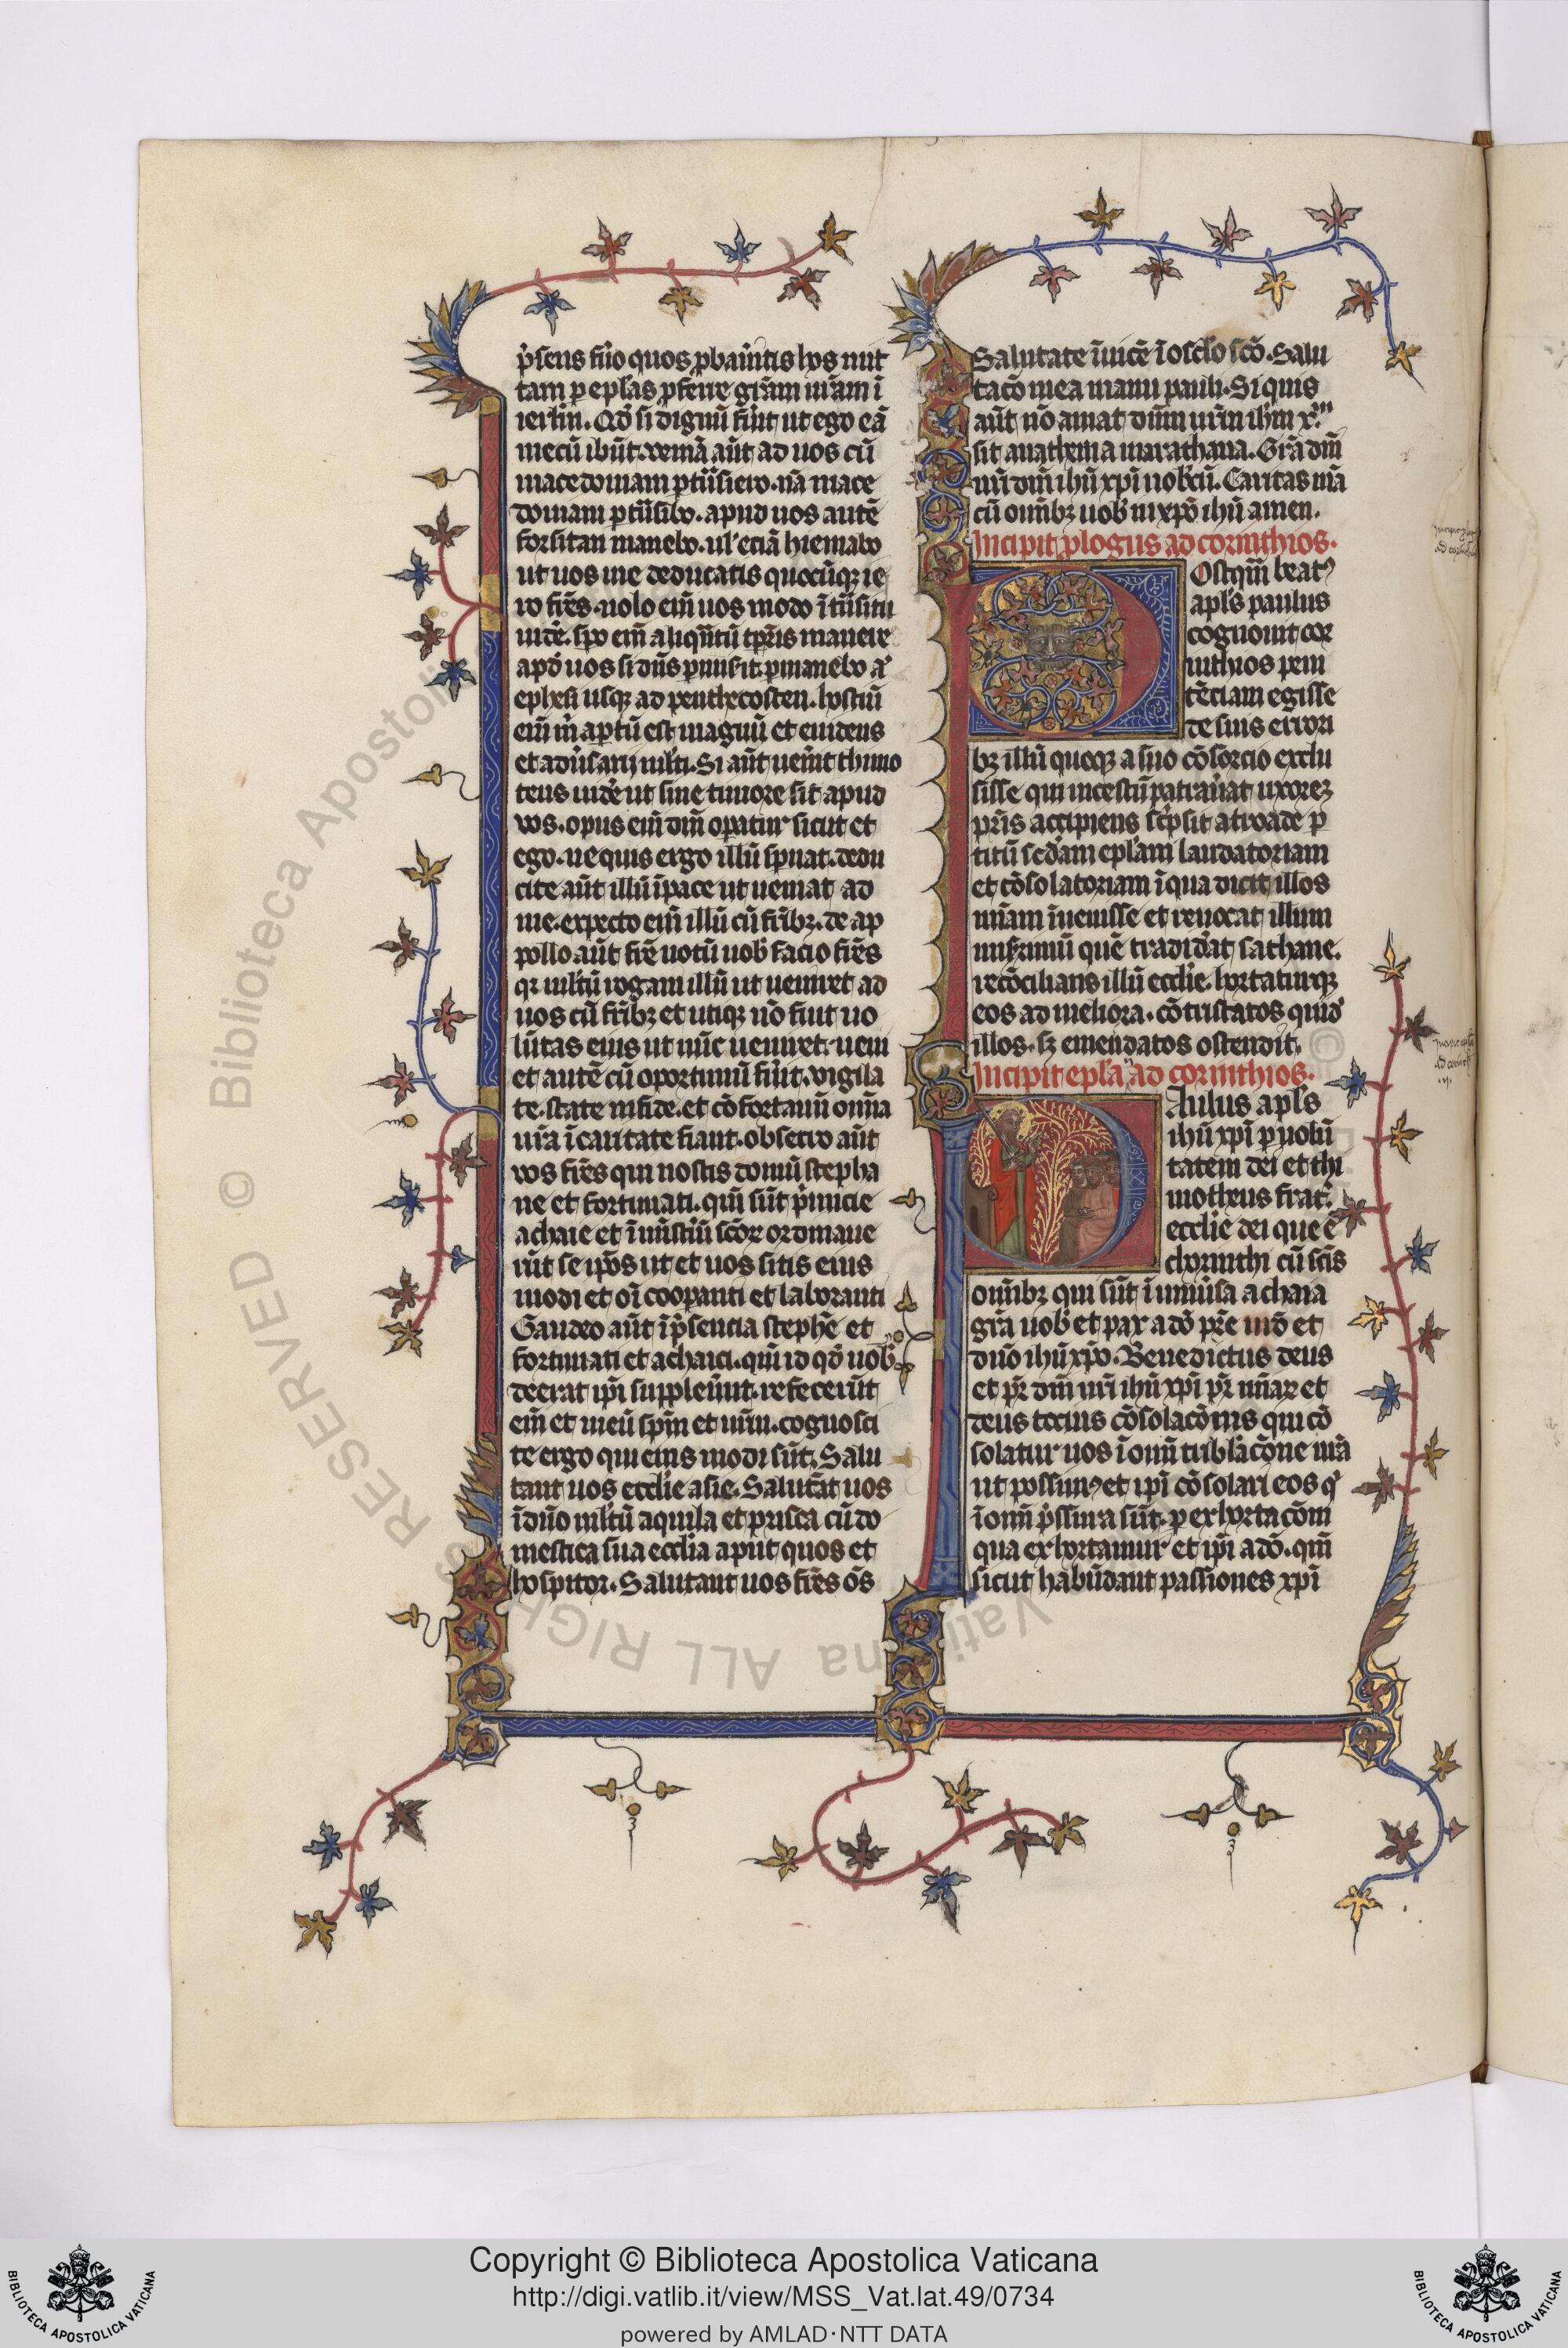 p̓sens fu̓o quos ꝓbau̓itis hos mit
tam ꝑ ep̄las ꝑferre gr̄am ur̄am ī
ierlm̄. Qd̓ si dignū fu̓it ut ego eā
mecū ibūt. veniā aūt ad uos cū
macedoniam ꝑtn̄siero. nā mace
doniam ꝑtn̄sibo. apud uos autē
forsitan manebo. ul̓ eciā hiemabo
ut uos me deducatis quocūqꝫ ie
ro fr̄es. nolo em̄ uos modo ī tn̄situ
uide̓. spo em̄ aliqn̄tū tp̄ris manere
apd̓ uos si dn̄s ꝑmisit ꝑmanebo a̓
ephesi usqꝫ ad penthecosten. hostiū
em̄ m̓ aꝑtū est magnū et euidens
et adu̓sarij ml̓ti. Si aūt uen̓it thimo
teus uide̓ ut sine timore sit apud
vos. opus em̄ dn̄i oꝑatur sicut et
ego. ne quis ergo illū spnat. dedu
cite aūt illū ī pace ut ueniat ad
me. expecto em̄ illū cū fr̄ibꝫ. de ap
pollo aūt fr̄e notū uob̓ facio fr̄es
qꝛ ml̓tū rogaui illū ut ueniret ad
uos cū fr̄ibꝫ et utiqꝫ nō fuit uo
lūtas eius ut nūc ueniret. ueni
et autē cū oportunū fu̓it. vigila
te. state in fide. et cōfortam̄ om̄ia
ur̄a ī caritate fiant. obsecro aūt
vos fr̄es qui nostis domū stepha
ne et fortunati. qm̄ sūt p̓micie
achaie et ī mīstiū scōꝝ ordinaue
rūt se ip̄os ut et uos sitis eius
modi et oī cooꝑanti et laboranti
Gaudeo aūt ī p̓sencia stephē et
fortunati et achaici. qm̄ id qd̓ uob̓
deerat ip̄i suppleuūt. refecerūt
em̄ et meū spm̄ et ur̄m. cognosci
te ergo qui eius modi sūt. Salu
tant uos eccl̓ie asie. Salutāt uos
ī dn̄o ml̓tū aquila et prisca cū do
mestica sua eccl̓ia aput quos et
hospitor. Salutant uos fr̄es oēs
Salutate īuicē ī osclo̓ scō. Salu
tacō mea manu pauli. Si quis
aūt nō amat dn̄m nr̄m ihm̄ x̄ᵐ
sit anathema marathana. Gr̄a dn̄i
nr̄i dn̄i ihū xp̄i uob̓cū. Caritas mā
cū om̄ibꝫ uob̓ in xpō ihū amen.
Incipit ꝓlogus ad corinthios.
Ostqm̄ beatꝰ
apl̓s paulus
cognouit cor
inthios peni
tēciam egisse
de suis errori
bꝫ illū quoqꝫ a suo cōsorcio exclu
sisse qui incestū patrau̓at uxoreꝫ
pr̄is accipiens sc̓psit a troade ꝑ
titū scd̓am ep̄lam laudatoriam
et cōsolatoriam ī qua dicit illos
ueniam īuenisse et reuocat illum
infirmū quē tradid̓at sathane.
recōcilians illū eccl̓ie. hortaturqꝫ
eos ad meliora. cōtristatos quid̓
illos. sꝫ emendatos ostendit.
Incipit ep̄la ad corinthios.
Aulus apl̓s
ihū xp̄i ꝑ uolū
tatem dei et thi
motheus frat̓.
eccl̓ie dei que ē
chorinthi cū scīs
om̄ibꝫ qui sūt ī uniu̓sa achaia
gr̄a uob̓ et pax a dō pr̄e nr̄o et
dn̄o ihū xp̄o. Benedictus deus
et pr̄ dn̄i nr̄i ihū xp̄i pr̄ mīaꝝ et
deus tocius cōsolacōnis qui cō
solatur uos ī om̄i tribl̓acōne nr̄a
ut possimꝰ et ip̄i cōsolari eos q̓
ī om̄i p̓ssura sūt. ꝑ exhortacōm
qua exhortamur et ip̄i a dō. qm̄
sicut habūdant passiones xp̄i
© Biblioteca Apostolica Vaticana ALL RIGHTS RESERVED
Copyright © Biblioteca Apostolica Vaticana
http://digi.vatlib.it/view/MSS_Vat.lat.49/0734
powered by AMLAD·NTT DATA
BIBLIOTECA APOSTOLICA VATICANA
BIBLIOTECA APOSTOLICA VATICANA